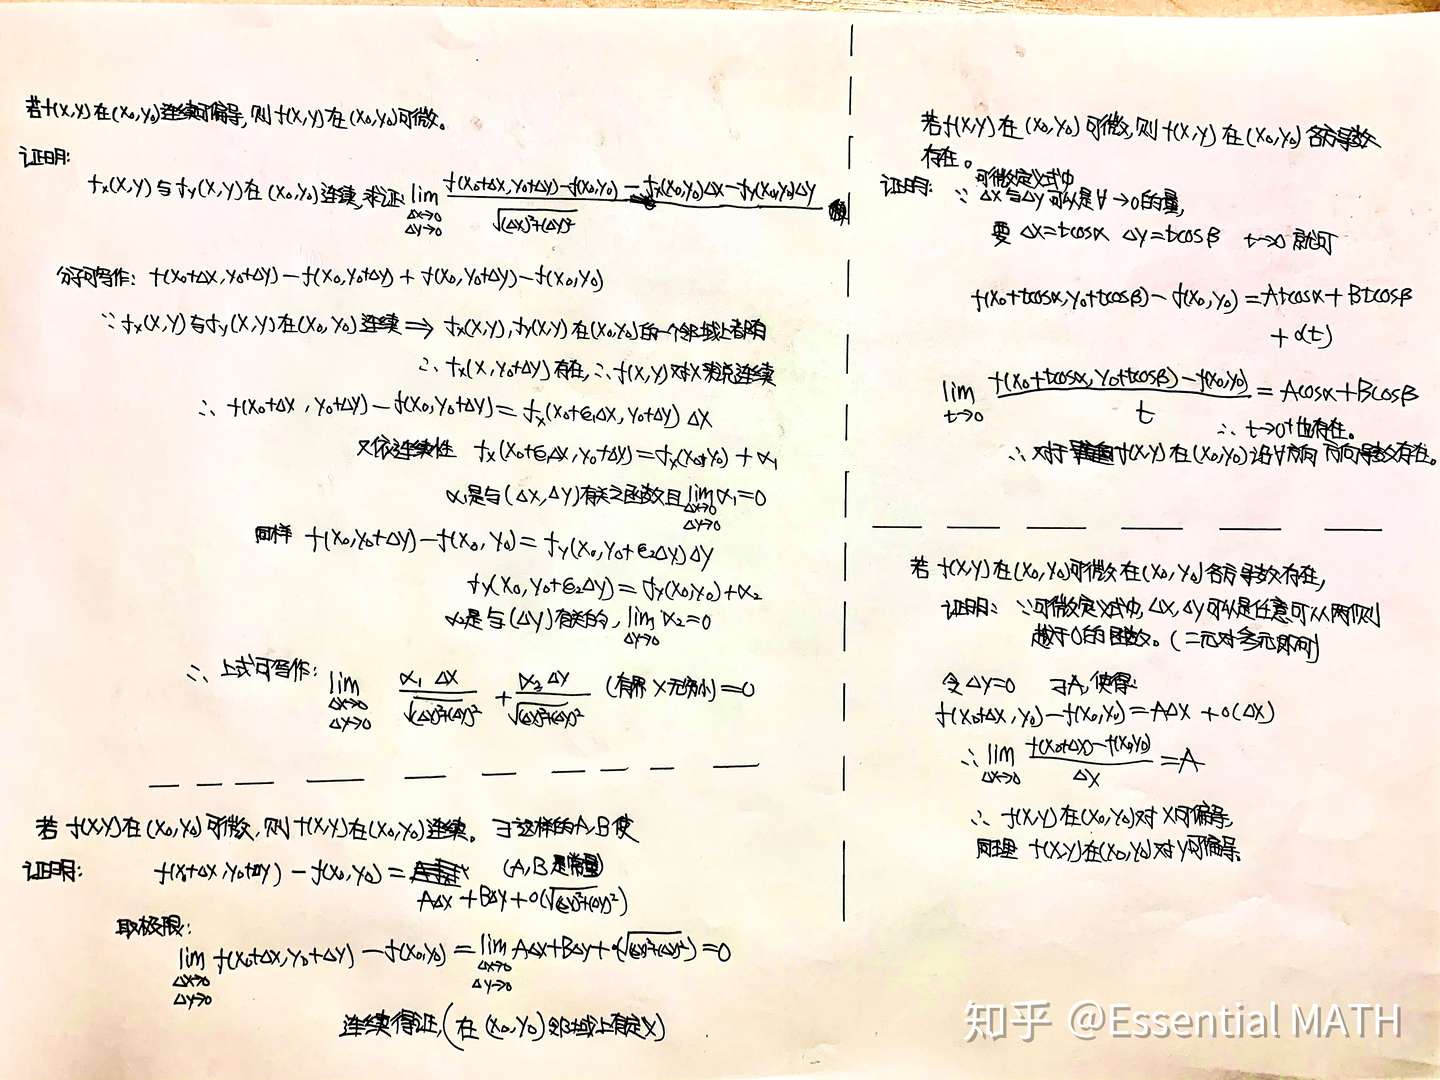 若f(x,y)在(x₀,y₀)连续可偏导,则f(x,y)在(x₀,y₀)可微。
证明:
fx(x,y)与fy(x,y)在(x₀,y₀)连续,求证: lim(Δx→0 Δy→0) [f(x₀+Δx,y₀+Δy)-f(x₀,y₀)-fx(x₀,y₀)Δx-fy(x₀,y₀)Δy]/√((Δx)²+(Δy)²)
分子可写作: f(x₀+Δx,y₀+Δy)-f(x₀,y₀+Δy)+f(x₀,y₀+Δy)-f(x₀,y₀)
∵fx(x,y)与fy(x,y)在(x₀,y₀)连续⇒fx(x,y),fy(x,y)在(x₀,y₀)的一个邻域上都有
∴fx(x,y₀+Δy)存在,∴f(x,y)对x来说连续
∴f(x₀+Δx,y₀+Δy)-f(x₀,y₀+Δy)=fx(x₀+ε₁Δx,y₀+Δy)Δx
又依连续性 fx(x₀+ε₁Δx,y₀+Δy)=fx(x₀,y₀)+α₁
α₁是与(Δx,Δy)有关之函数且lim(Δx→0 Δy→0)α₁=0
同样 f(x₀,y₀+Δy)-f(x₀,y₀)=fy(x₀,y₀+ε₂Δy)Δy
fy(x₀,y₀+ε₂Δy)=fy(x₀,y₀)+α₂
α₂是与(Δy)有关的,lim(Δy→0)α₂=0
∴上式可写作: lim(Δx→0 Δy→0) α₁Δx/√((Δx)²+(Δy)²)+α₂Δy/√((Δx)²+(Δy)²) (有界×无穷小)=0
若f(x,y)在(x₀,y₀)可微,则f(x,y)在(x₀,y₀)连续。∃这样的A,B使
证明: f(x₀+Δx,y₀+Δy)-f(x₀,y₀)= (A,B是常量)
AΔx+BΔy+o(√((Δx)²+(Δy)²))
取极限:
lim(Δx→0 Δy→0) f(x₀+Δx,y₀+Δy)-f(x₀,y₀)=lim(Δx→0 Δy→0) AΔx+BΔy+o(√((Δx)²+(Δy)²))=0
连续得证,(在(x₀,y₀)邻域上有定义)
若f(x,y)在(x₀,y₀)可微,则f(x,y)在(x₀,y₀)各方导数
存在。
证明: 可微定义式中
∵Δx与Δy可以是∀→0的量,
要 Δx=tcosα Δy=tcosβ t→0 就可
f(x₀+tcosα,y₀+tcosβ)-f(x₀,y₀)=Atcosα+Btcosβ
+o(t)
lim(t→0) [f(x₀+tcosα,y₀+tcosβ)-f(x₀,y₀)]/t=Acosα+Bcosβ
∴t→0⁺也存在。
∴对于f(x,y)在(x₀,y₀)沿∀方向方向导数存在。
若f(x,y)在(x₀,y₀)可微在(x₀,y₀)各方导数存在,
证明: ∵可微定义式中,Δx,Δy可以是任意可从两侧
趋于0的函数。(二元对多元即可)
令Δy=0 ∃A,使得:
f(x₀+Δx,y₀)-f(x₀,y₀)=AΔx+o(Δx)
∴lim(Δx→0) [f(x₀+Δx)-f(x₀,y₀)]/Δx=A
∴f(x,y)在(x₀,y₀)对x可偏导,
同理 f(x,y)在(x₀,y₀)对y可偏导.
知乎 @Essential MATH